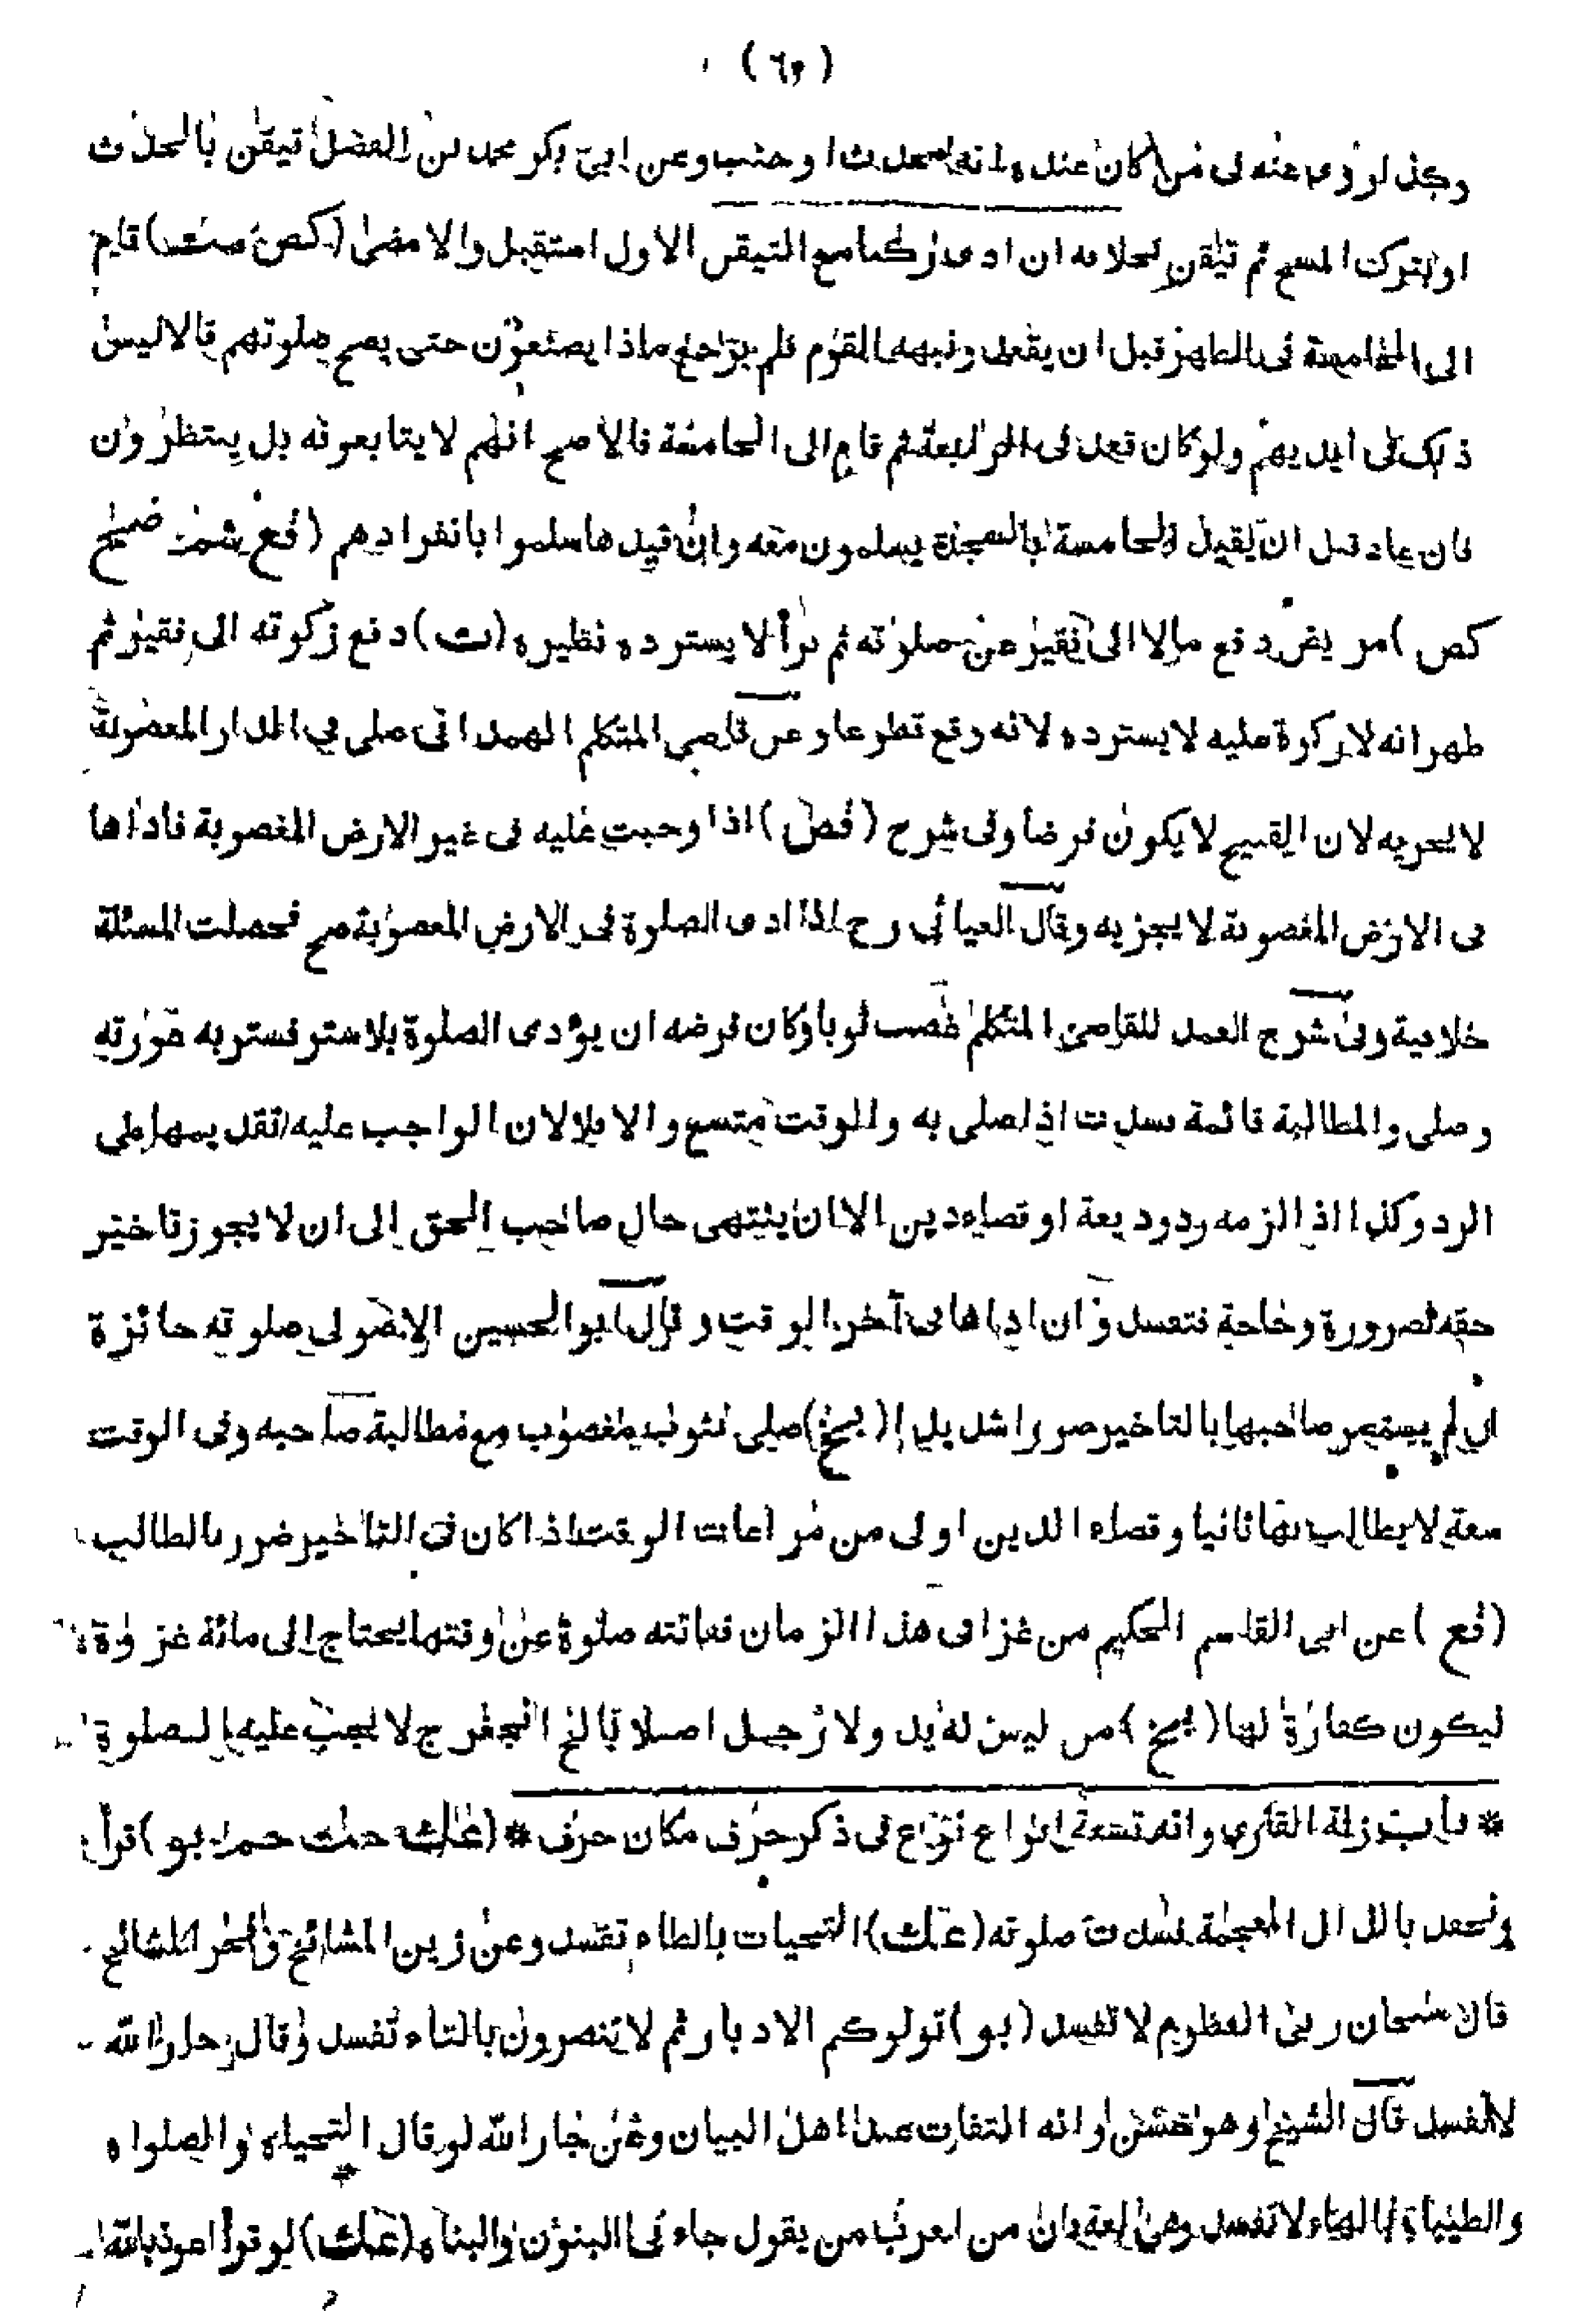 (٦٩)
وكذا روى عنه فى من كان عنده انه محدث او جنب وعن ابى بكر محمد بن الفضل تيقن بالحدث
او بترك المسح ثم تيقن بخلافه ان ادى ركنا مع التيقن الاول استقبل والا مضى (كص ست) قام
الى الخامسة فى الظهر قبل ان يقعد ونبهه القوم فلم يراجع ماذا يصنعون حتى يصح صلوتهم قالا ليس
ذلك فى ايديهم ولو كان قعد فى الرابعة ثم قام الى الخامسة فالاصح انهم لا يتابعونه بل ينتظرون
فان عاد قبل ان يقيد الخامسة بالسجدة يسلمون معه وان قيدها سلموا بانفرادهم (فع شمت ضح
كص) مريض دفع مالا الى فقير عن صلوته ثم برأ لا يسترده نظيره (ت) دفع زكوته الى فقير ثم
ظهر انه لا زكوة عليه لا يسترده لانه وقع تطوعا وعن قاضى المتكلم الهمدانى صلى في الدار المغصوبة
لا يجزيه لان القبيح لا يكون فرضا وفى شرح (فص) اذا وجبت عليه فى غير الارض المغصوبة فاداها
فى الارض المغصوبة لا يجزيه وقال رح اذا ادى الصلوة فى الارض المغصوبة صح فحصلت المسئلة
خلافية وفى شرح العمد للقاضى المتكلم غصب ثوبا وكان فرضه ان يؤدى الصلوة بلا ستر فستر به عورته
وصلى والمطالبة قائمة فسدت اذا صلى به والوقت متسع والا فلا لان الواجب عليه تقديمها على
الرد وكذا اذا لزمه رد وديعة او قضاء دين الا ان ينتهى حال صاحب الحق الى ان لا يجوز تاخير
حقه لضرورة وحاجة فتفسد وان اداها فى آخر الوقت وقال ابو الحسين صلوته جائزة
ان لم يستضر صاحبها بالتاخير ضررا شديدا (بمخ) صلى بثوب مغصوب مع مطالبة صاحبه وفى الوقت
سعة لا يطالب بها ثانيا وقضاء الدين اولى من مراعات الوقت اذا كان فى التاخير ضرر بالطالب
(فع) عن ابى القاسم الحكيم من غزا فى هذا الزمان ففاتته صلوة عن وقتها يحتاج الى مائة غزوة
ليكون كفارة لها (بمخ) من ليس له يد ولا رجل اصلا لا يجب عليه الصلوة
* باب زلة القارى وانه تسعة انواع نوع فى ذكر حرف مكان حرف * (عك حمت حم بو) قرأ
ونحفد بالذال المعجمة فسدت صلوته (عك) التحيات بالطاء تفسد وعن زين المشائخ وفخر المشائخ
قال سبحان ربى العظيم لا تفسد (بو) تولوكم الادبار ثم لا ينصرون بالتاء تفسد وقال جار الله
لا تفسد قال الشيخ وهو حسن وانه التفات عند اهل البيان وعن جار الله لو قال التحياه والصلواه
والطيباه بالهاء لا تفسد وهى لغة فان من العرب من يقول جاءنى البنون والبناه (عك) لو قرأ اعوذ بالله